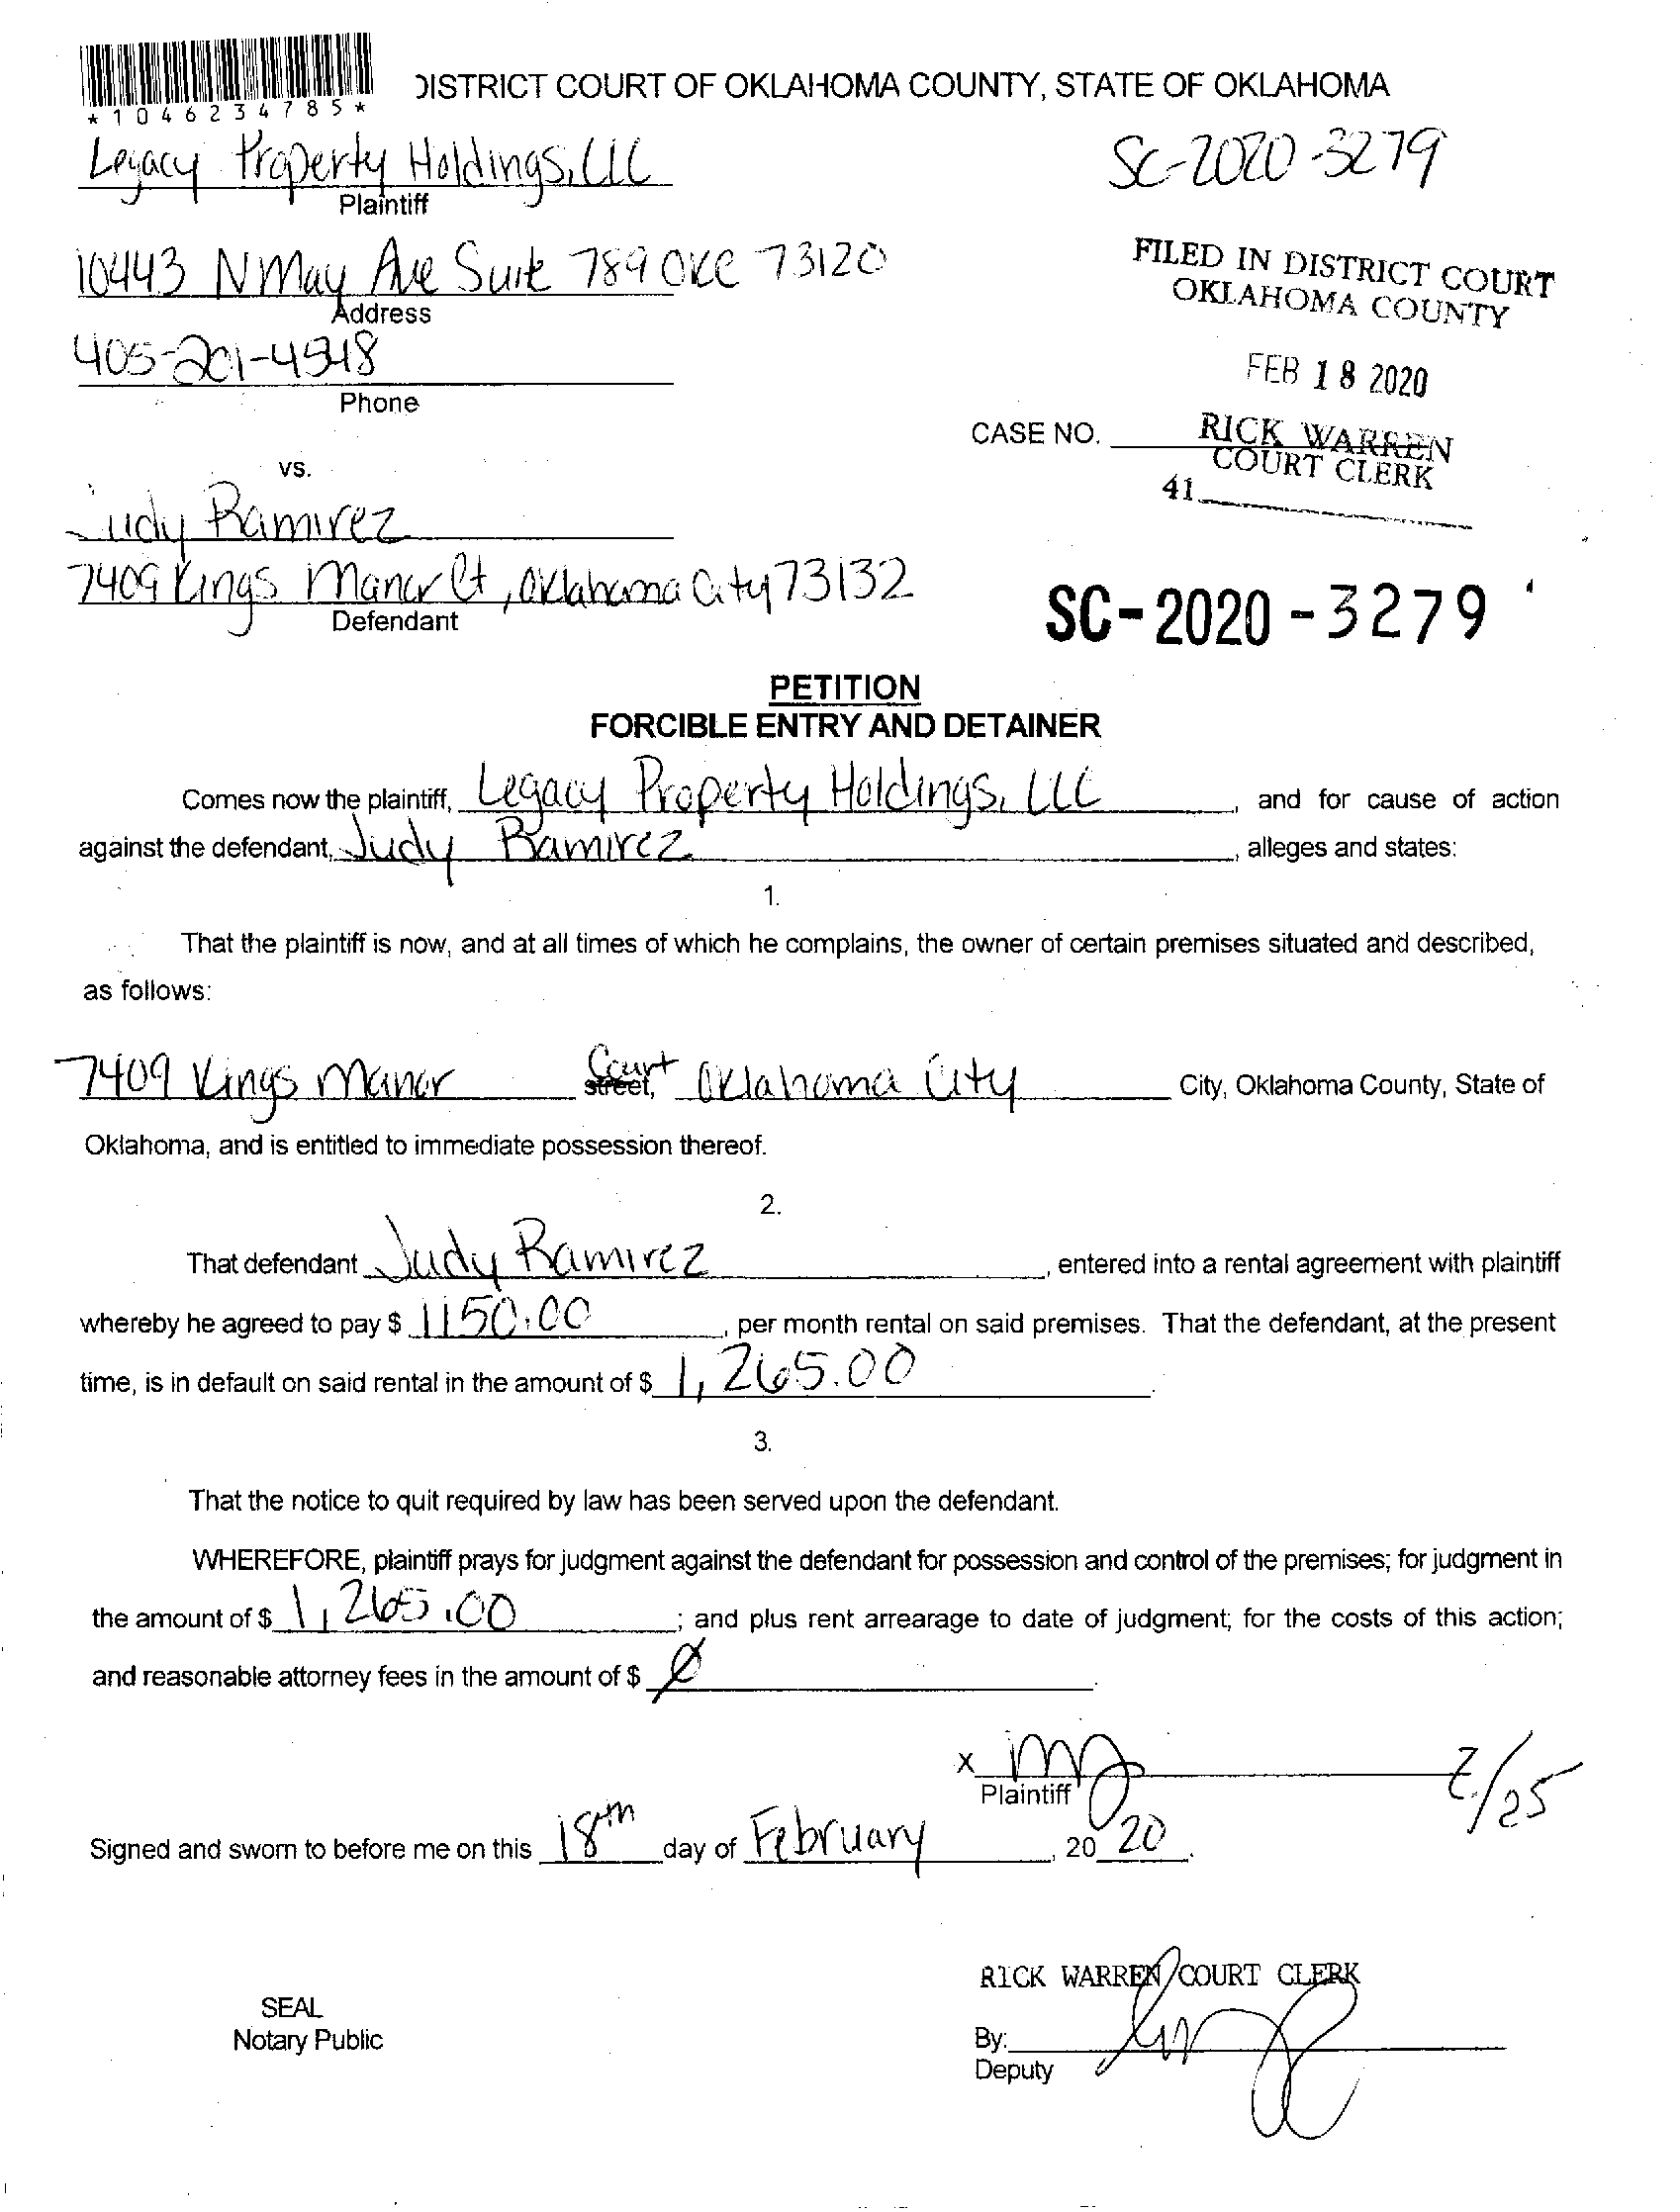 *1046234785*
DISTRICT COURT OF OKLAHOMA COUNTY, STATE OF OKLAHOMA
Legacy Property Holdings, LLC
Plaintiff
SC-2020-3279
10443 N May Ave Suite 789 OKC 73120
Address
FILED IN DISTRICT COURT
OKLAHOMA COUNTY
405-201-4948
Phone
FEB 18 2020
CASE NO.
RICK WARREN
COURT CLERK
41
vs.
Judy Ramirez
7409 Kings Manor Ct, Oklahoma City 73132
Defendant
SC-2020-3279
PETITION
FORCIBLE ENTRY AND DETAINER
Comes now the plaintiff, Legacy Property Holdings, LLC, and for cause of action
against the defendant, Judy Ramirez, alleges and states:
1.
That the plaintiff is now, and at all times of which he complains, the owner of certain premises situated and described,
as follows:
7409 Kings Manor street, Court Oklahoma City City, Oklahoma County, State of
Oklahoma, and is entitled to immediate possession thereof.
2.
That defendant Judy Ramirez, entered into a rental agreement with plaintiff
whereby he agreed to pay $ 1150.00, per month rental on said premises. That the defendant, at the present
time, is in default on said rental in the amount of $ 1,265.00.
3.
That the notice to quit required by law has been served upon the defendant.
WHEREFORE, plaintiff prays for judgment against the defendant for possession and control of the premises; for judgment in
the amount of $ 1,265.00; and plus rent arrearage to date of judgment; for the costs of this action;
and reasonable attorney fees in the amount of $ Ø.
X
Plaintiff
2/25
Signed and sworn to before me on this 18th day of February, 20 20.
RICK WARREN COURT CLERK
SEAL
Notary Public
By:
Deputy